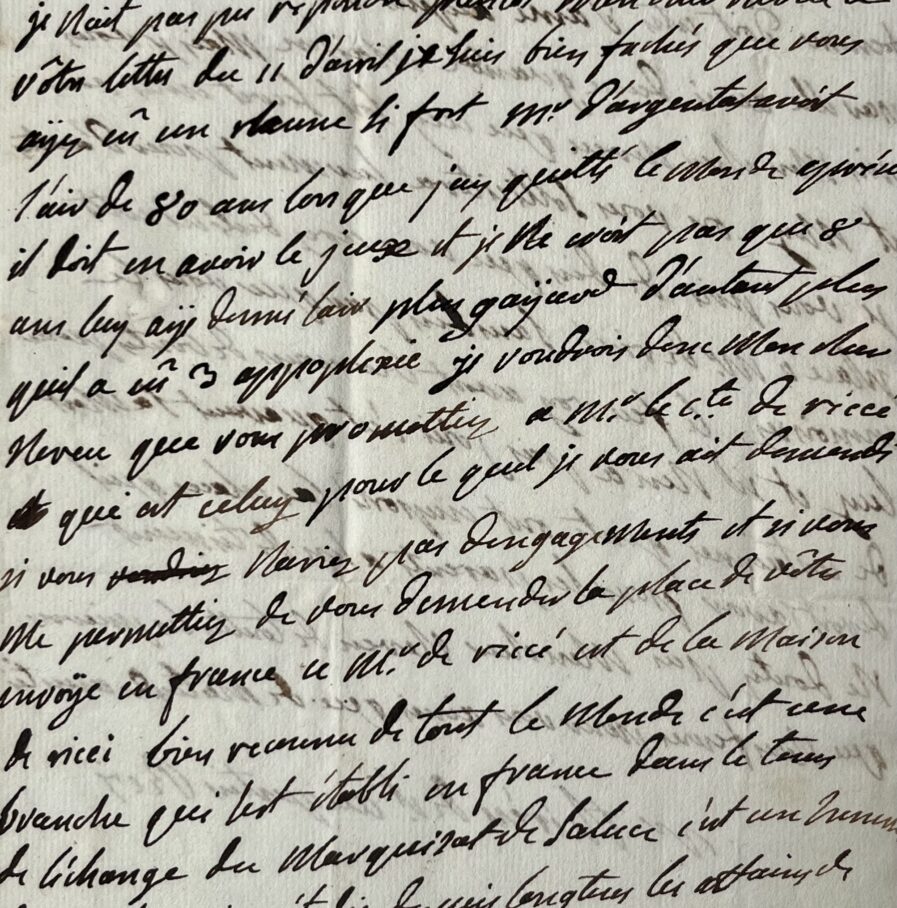 je nait pas pu repondre
vôtre lettre du 11 d'avril je suis bien fachés que vous
ayez eü un rhume si fort Mr. d'argentat avoit
l'air de 80 ans lors que j'ay quitté le Monde
il doit en avoir le jeux et je Ne croit pas que 8
ans luy aÿe donné lair plus gaÿard d'autant plus
quil a eü 3 appoplexie je voudrois donc Mon cher
Neveu que vous promettiez a Mr. le c.te de riccé
qui est celuy pour le quel je vous ait demendé
si vous vendriez Naviez pas dengagements et si vous
Me permettiez de vous demender la place de vôtre
envoÿe en france ce Mr. de riccé est de la Maison
de ricci bien reconnu de tout le Monde c'est une
branche qui sest établi en france dans le tems
de léchange du Marquisat de Saluce c'est un
longtems les affaires de